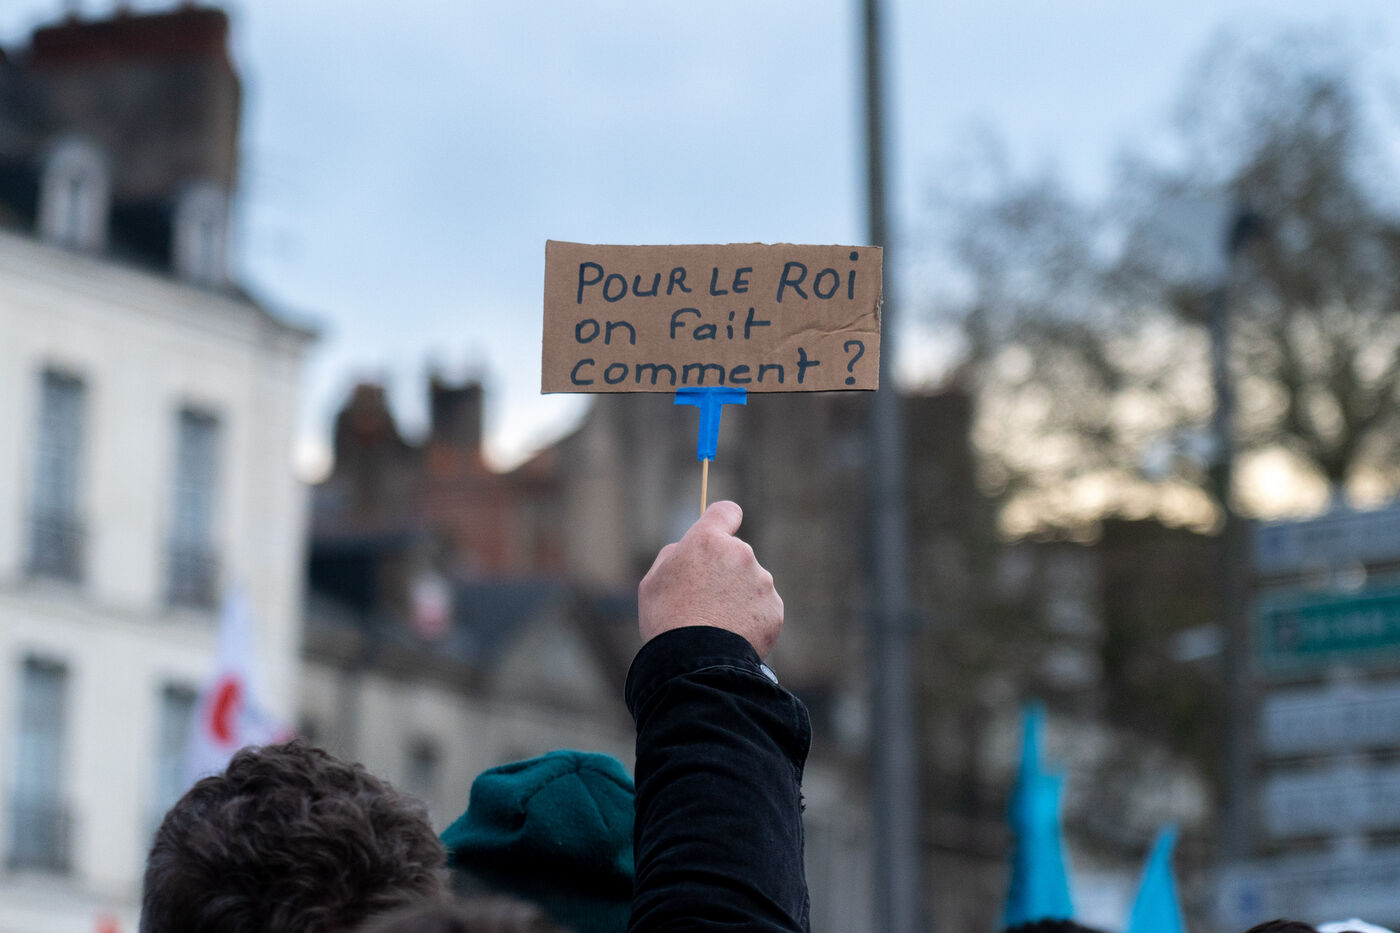 POUR LE Roi
on fait
comment ?